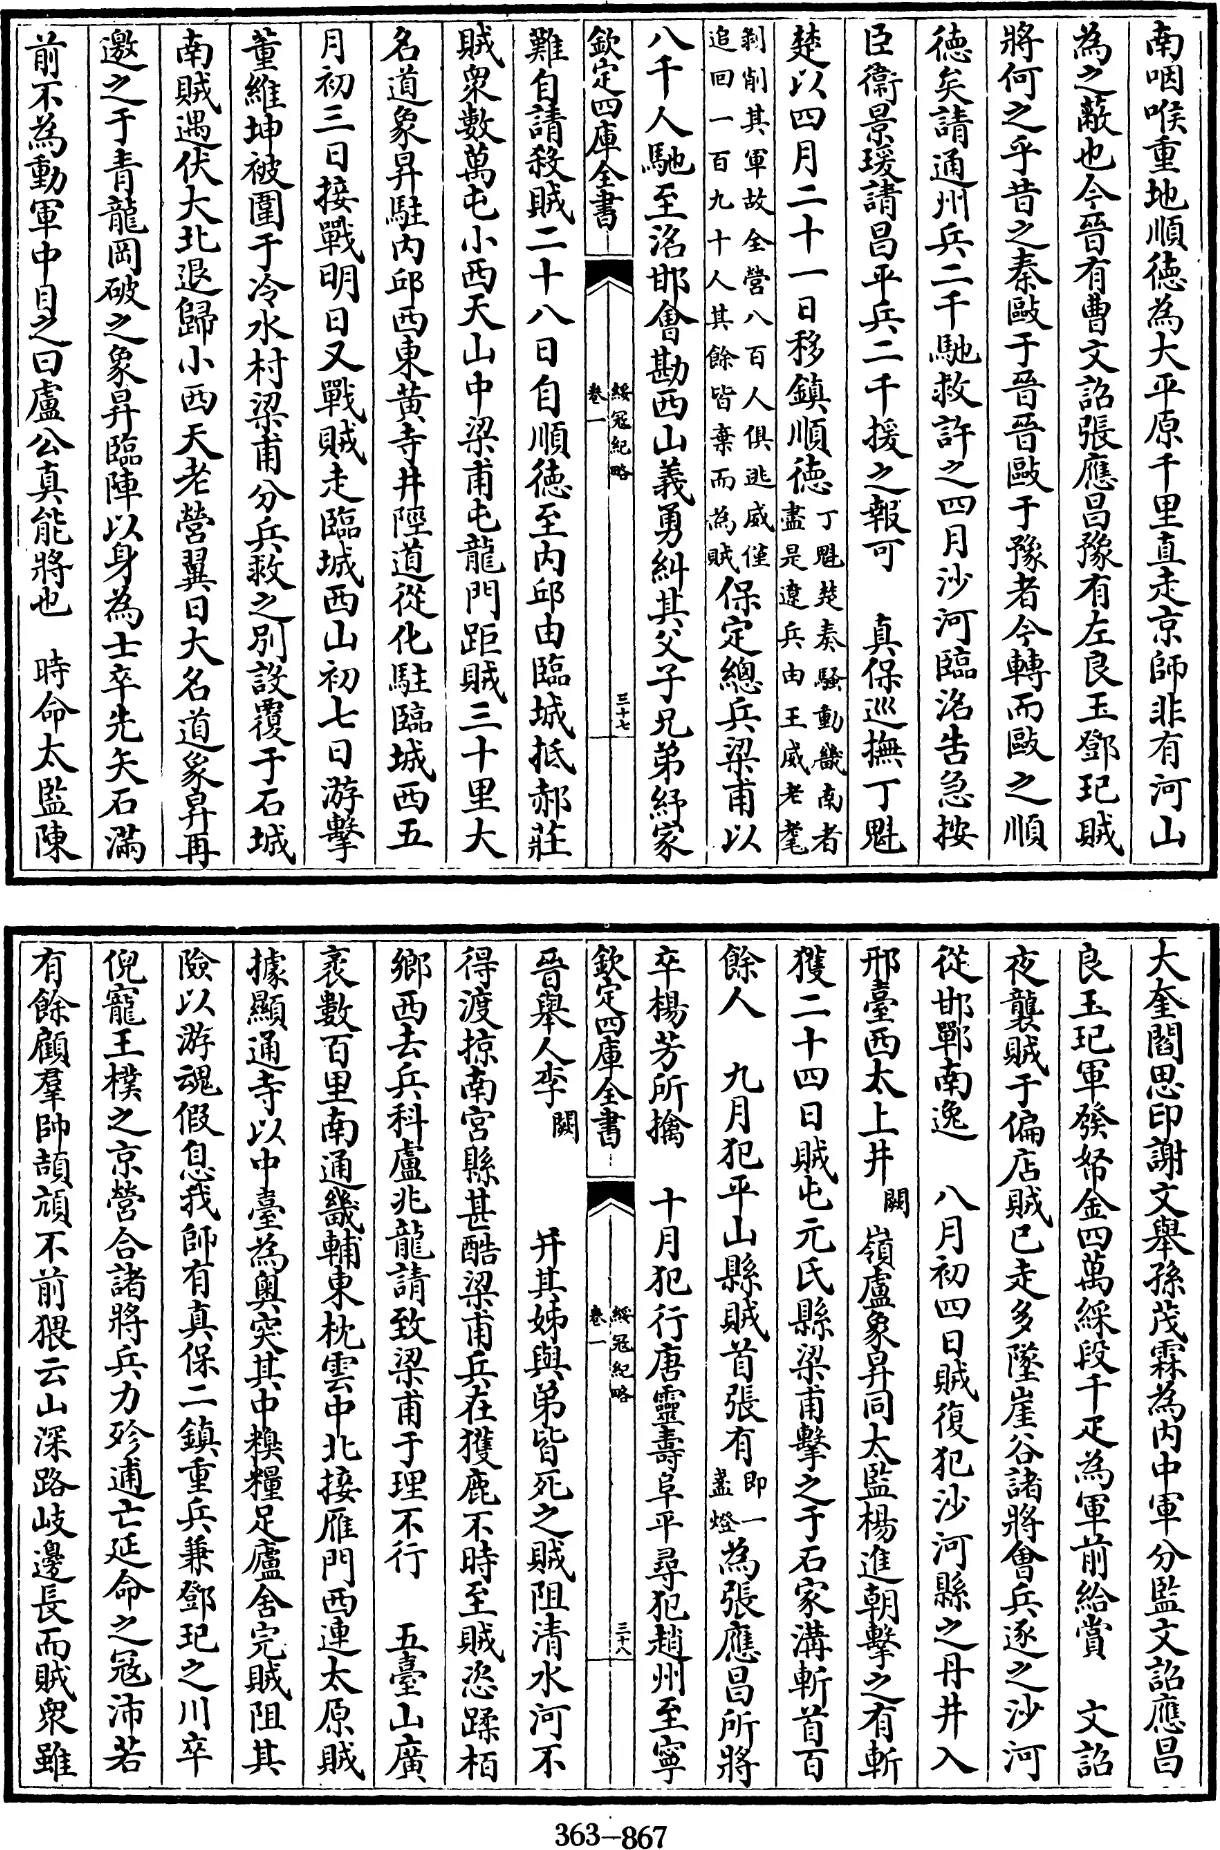 南咽喉重地順徳為大平原千里直走京師非有河山
為之蔽也今晉有曹文詔張應昌豫有左良玉鄧玘賊
將何之乎昔之秦毆于晉晉毆于豫者今轉而毆之順
徳矣請通州兵二千馳救許之四月沙河臨洺告急按
臣衛景瑗請昌平兵二千援之報可　真保巡撫丁魁
楚以四月二十一日移鎮順徳丁魁楚奏騷動畿南者盡是遼兵由王威老耄
剥削其軍故全營八百人俱逃威僅追回一百九十人其餘皆棄而為賊保定總兵梁甫以
八千人馳至洺邯會勘西山義勇糾其父子兄弟紓家
欽定四庫全書
綏寇紀略
卷一
三十七
難自請殺賊二十八日自順徳至内邱由臨城抵郝莊
賊衆數萬屯小西天山中梁甫屯龍門距賊三十里大
名道象昇駐内邱西東黄寺井陘道從化駐臨城西五
月初三日接戰明日又戰賊走臨城西山初七日游擊
董維坤被圍于冷水村梁甫分兵救之别設覆于石城
南賊遇伏大北退歸小西天老營翼日大名道象昇再
邀之于青龍岡破之象昇臨陣以身為士卒先矢石滿
前不為動軍中目之曰盧公真能將也　時命太監陳
大奎閻思印謝文舉孫茂霖為内中軍分監文詔應昌
良玉玘軍發帑金四萬綵段千疋為軍前給賞　文詔
夜襲賊于偏店賊已走多墜崖谷諸將會兵逐之沙河
從邯鄲南逸　八月初四日賊復犯沙河縣之丹井入
邢臺西太上井闕嶺盧象昇同太監楊進朝擊之有斬
獲二十四日賊屯元氏縣梁甫擊之于石家溝斬首百
餘人　九月犯平山縣賊首張有即一盞燈為張應昌所將
卒楊芳所擒　十月犯行唐靈壽阜平尋犯趙州至寧
欽定四庫全書
綏寇紀略
卷一
三十八
晉舉人李闕　并其姊與弟皆死之賊阻清水河不
得渡掠南宫縣甚酷梁甫兵在獲鹿不時至賊恣蹂栢
鄉西去兵科盧兆龍請致梁甫于理不行　五臺山廣
袤數百里南通畿輔東枕雲中北接雁門西連太原賊
據顯通寺以中臺為奥突其中糗糧足廬舍完賊阻其
險以游魂假息我師有真保二鎮重兵兼鄧玘之川卒
倪寵王樸之京營合諸將兵力殄逋亡延命之寇沛若
有餘顧羣帥頡頏不前猥云山深路岐邊長而賊衆雖
363-867